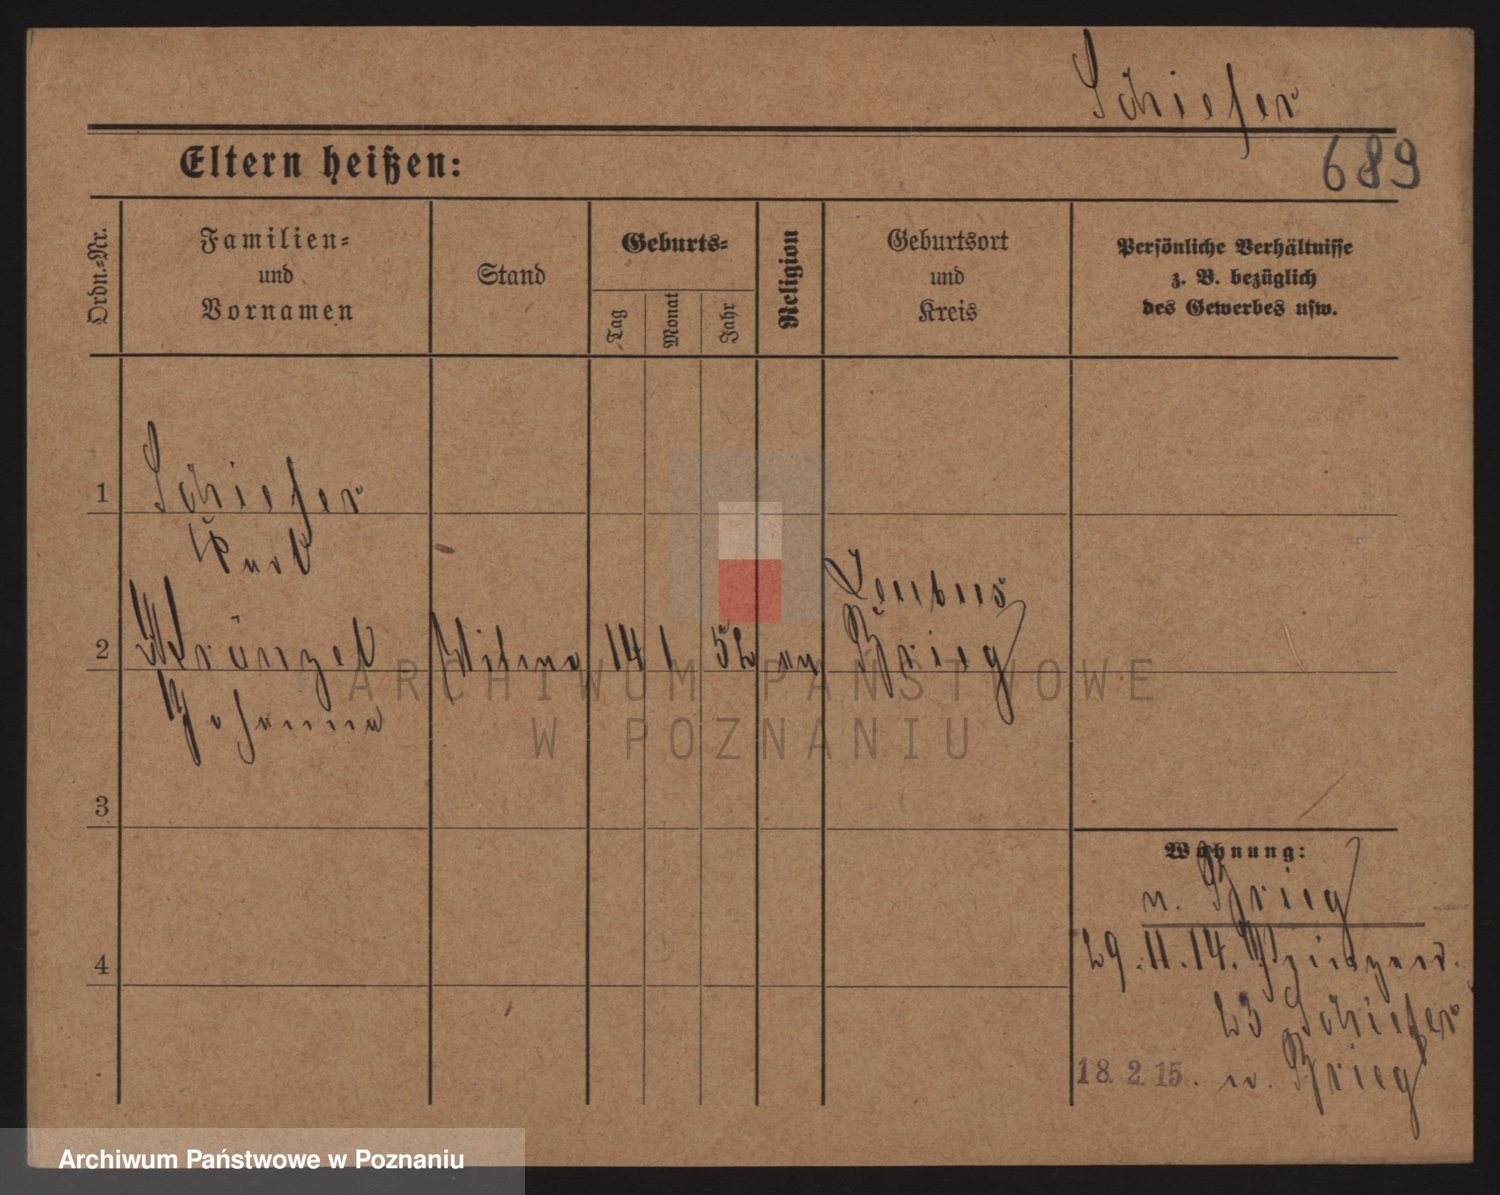 Schiefer
689
Eltern heißen:
Ordn.=Nr.
Familien=
und
Vornamen
Stand
Geburts=
Tag
Monat
Jahr
Religion
Geburtsort
und
Kreis
Persönliche Verhältnisse
z. B. bezüglich
des Gewerbes usw.
1
Schiefer
2
Johanna
Witwe 14 1 52 ev
Leubus
Brieg
3
4
Wohnung:
n. Brieg
29. 11. 14.
23 Schiefer
18. 2. 15. n. Brieg
ARCHIWUM PAŃSTWOWE
W POZNANIU
Archiwum Państwowe w Poznaniu